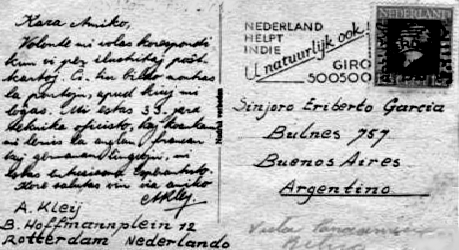 Kara Amiko,
Volonte mi volas korespondi
kun vi per ilustritaj poŝt
kartoj. Ĉi tiu bildo montras
la pordojn, apud kiuj mi
loĝas. Mi estas 33 jara
teknika oficisto, kaj krankam
mi lernis la anglan, francan
kaj germanan lingvojn, mi
estas entuziasma Esperantisto.
Kore salutas vin via amiko
AKleij.
A. Kleij
B. Hoffmannplein 12
Rotterdam Nederlando
NEDERLAND
HELPT
INDIE
U natuurlijk ook!
GIRO
500500
NEDERLAND
Sinjoro Eriberto Garcia
Bulnes 757
Buenos Aires
Argentino